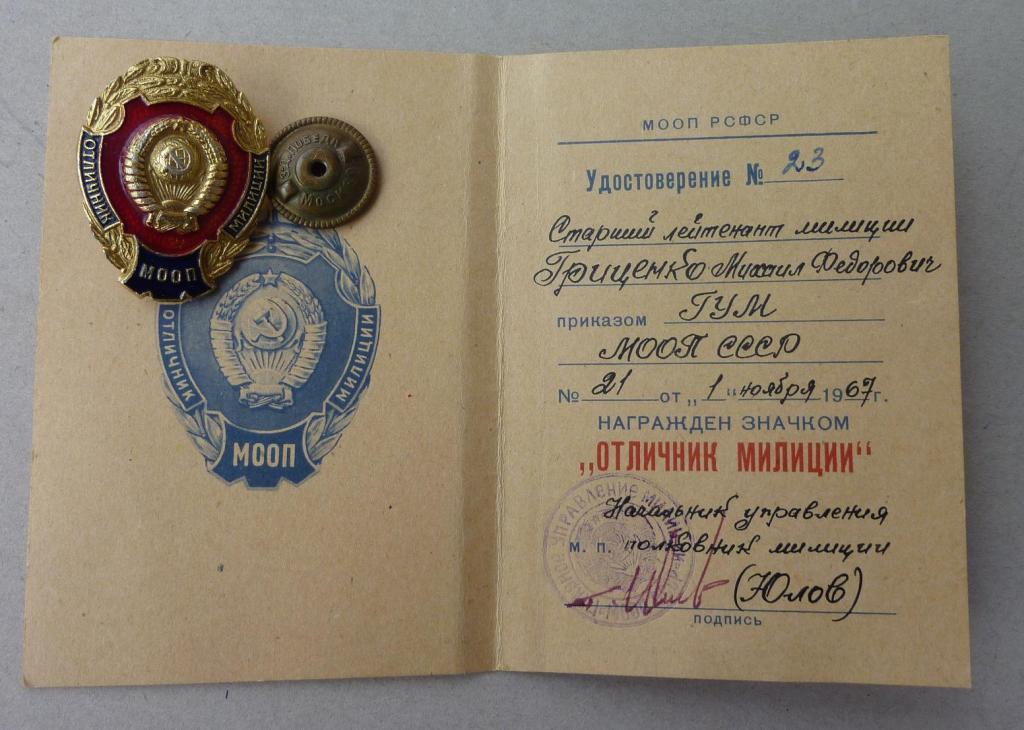 ОТЛИЧНИК
МИЛИЦИИ
МООП
ПОБЕДА
МОСКВА
ОТЛИЧНИК
МИЛИЦИИ
МООП
МООП РСФСР
Удостоверение № 23
Старший лейтенант милиции
Гриценко Михаил Федорович
приказом ГУМ
МООП СССР
№ 21 от „1“ ноября 1967 г.
НАГРАЖДЕН ЗНАЧКОМ
„ОТЛИЧНИК МИЛИЦИИ“
Начальник управления
м. п. полковник милиции
(Юлов)
подпись
УПРАВЛЕНИЕ МИЛИЦИИ